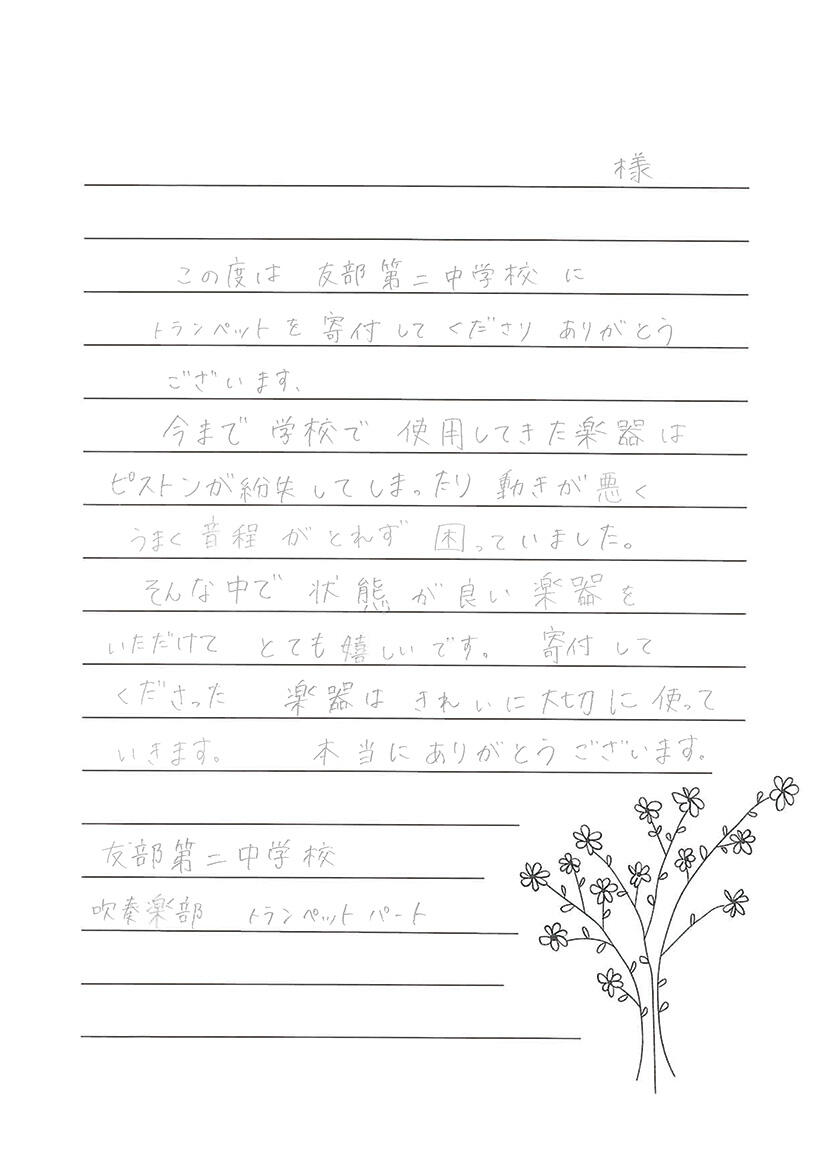 様
この度は 友部第二中学校 に
トランペットを 寄付 して くださり ありがとう
ございます、
今まで 学校で 使用してきた楽器は
ピストンが紛失してしまったり 動きが悪く
うまく音程がとれず 困っていました。
そんな中で 状態が良い 楽器を
いただけて とても嬉しいです。 寄付して
くださった 楽器は きれいに大切に使って
いきます。 本当にありがとうございます。
友部第二中学校
吹奏楽部 トランペットパート